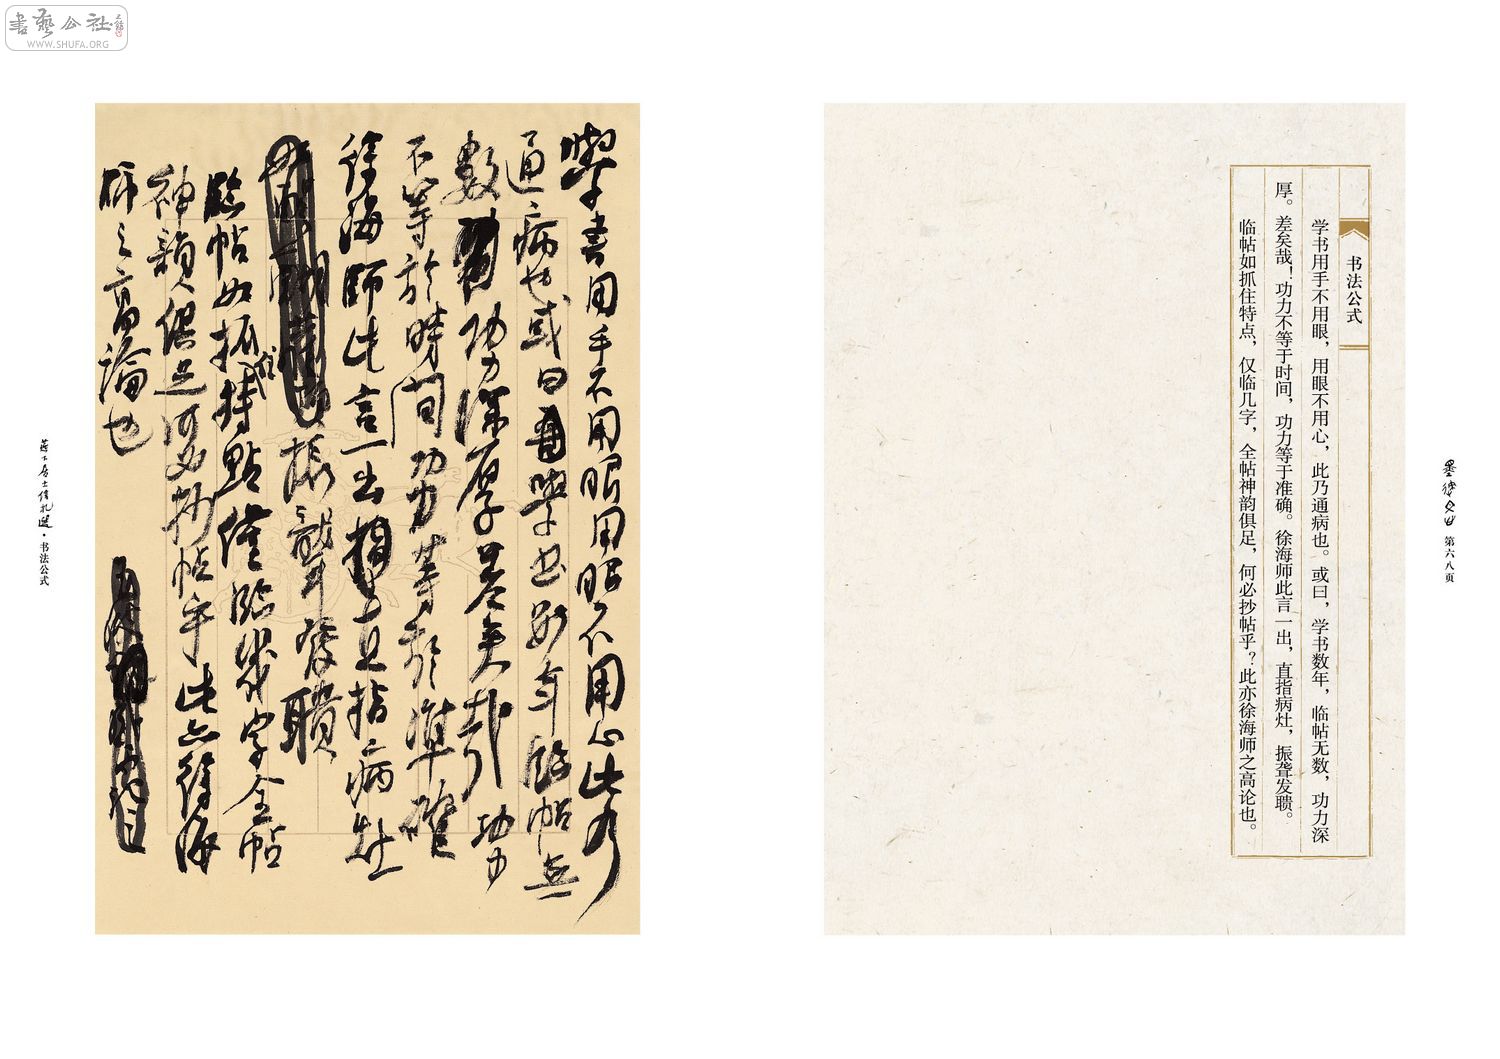 書藝公社
WWW.SHUFA.ORG
第六八页
书法公式
学书用手不用眼，用眼不用心，此乃通病也。或曰，学书数年，临帖无数，功力深
厚。差矣哉！功力不等于时间，功力等于准确。徐海师此言一出，直指病灶，振聋发聩。
临帖如抓住特点，仅临几字，全帖神韵俱足，何必抄帖乎？此亦徐海师之高论也。
學書用手不用眼用眼不用心此乃
通病也或曰學书数年臨帖无
數功力深厚差矣哉功力
不等於時间功力等於準確
徐海師此言一出直指病灶
振聾發聵
臨帖如抓住特點僅臨幾字全帖
神韻俱足何必抄帖乎此亦徐海
師之高論也
书法公式